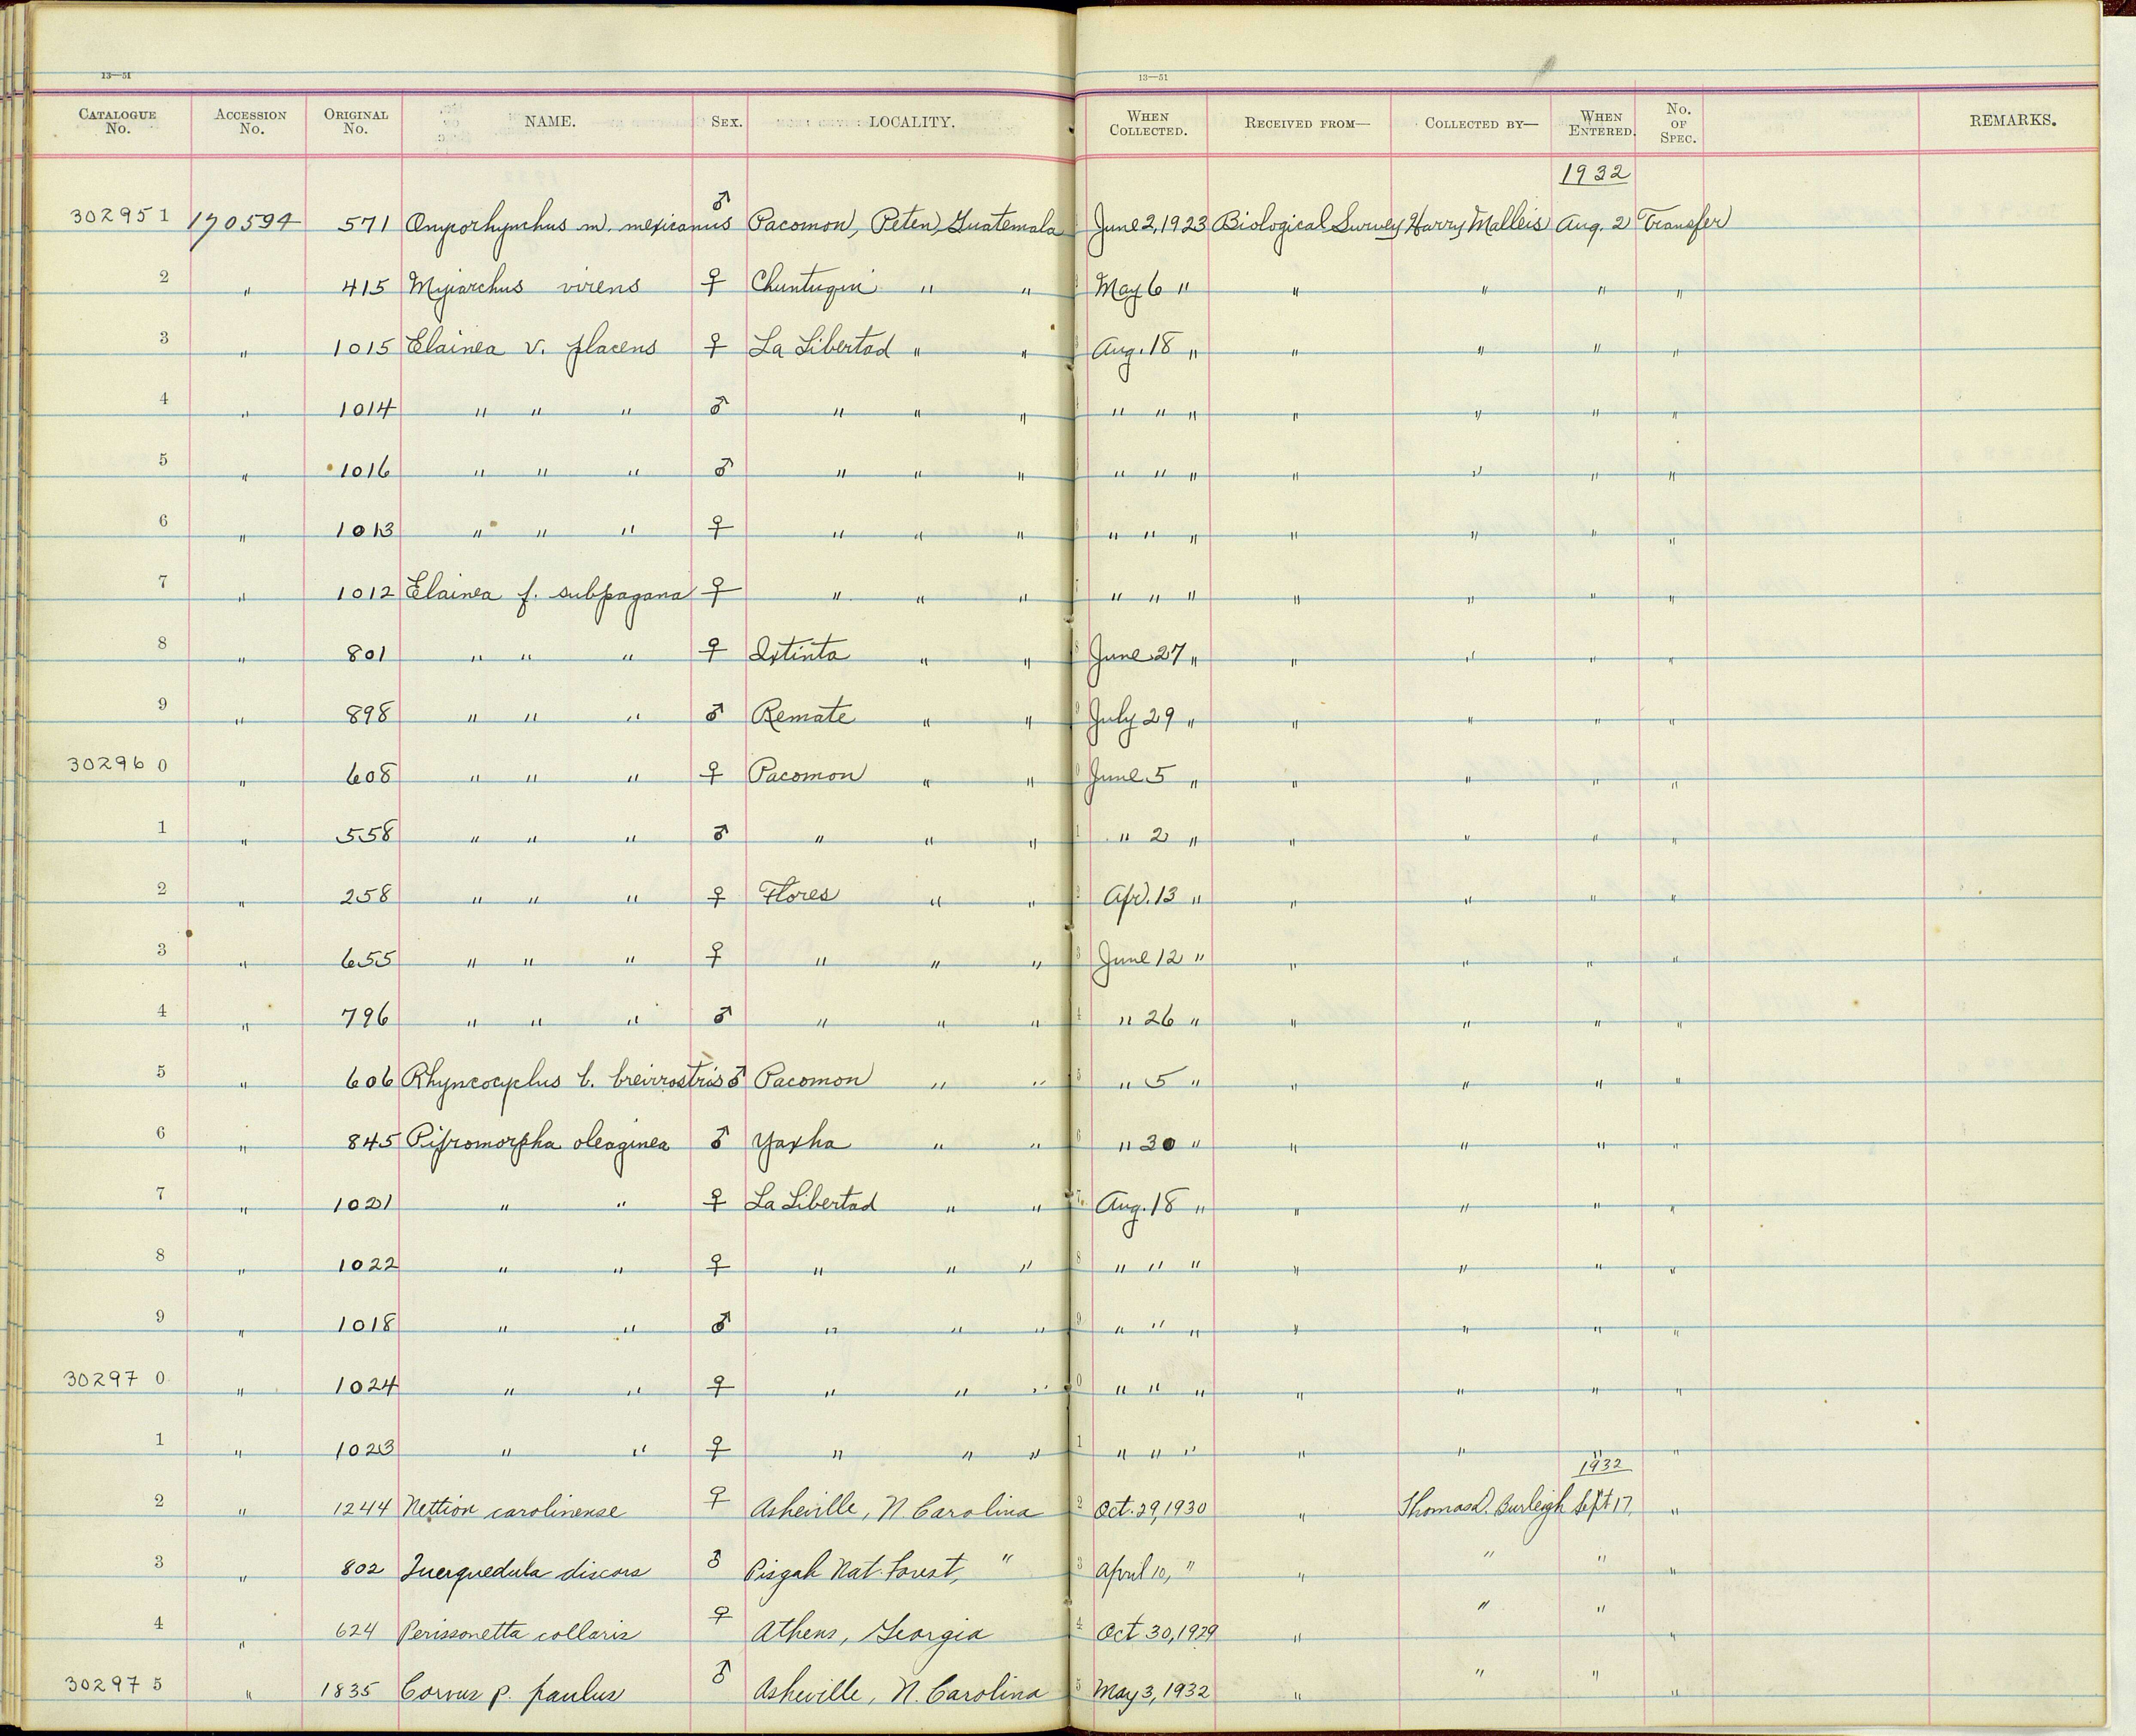 13—51 13—51
CATALOGUE No. ACCESSION No. ORIGINAL No. NAME. SEX. LOCALITY. WHEN COLLECTED. RECEIVED FROM— COLLECTED BY— WHEN ENTERED. No. OF SPEC. REMARKS.
1932
302951 170594 571 Onycorhynchus m. mexicanus ♂ Pacomon, Peten, Guatemala June 2, 1923 Biological Survey Harry Malleis Aug. 2 Transfer
2 " 415 Myiarchus virens ♀ Chuntuqui " " May 6 " " " " "
3 " 1015 Elainea v. placens ♀ La Libertad " " Aug. 18 " " " " "
4 " 1014 " " " ♂ " " " " " " " " " "
5 " 1016 " " " ♂ " " " " " " " " " "
6 " 1013 " " " ♀ " " " " " " " " " "
7 " 1012 Elainea f. subpagana ♀ " " " " " " " " " "
8 " 801 " " " ♀ Ixtinta " " June 27 " " " " "
9 " 898 " " " ♂ Remate " " July 29 " " " " "
302960 " 608 " " " ♀ Pacomon " " June 5 " " " " "
1 " 558 " " " ♂ " " " " 2 " " " " "
2 " 258 " " " ♀ Flores " " Apr. 13 " " " " "
3 " 655 " " " ♀ " " " June 12 " " " " "
4 " 796 " " " ♂ " " " " 26 " " " " "
5 " 606 Rhyncocyclus b. breivrostris ♂ Pacomon " " " 5 " " " " "
6 " 845 Pipromorpha oleaginea ♂ Yaxha " " " 30 " " " " "
7 " 1021 " " ♀ La Libertad " " Aug. 18 " " " " "
8 " 1022 " " ♀ " " " " " " " " " "
9 " 1018 " " ♂ " " " " " " " " " "
302970 " 1024 " " ♀ " " " " " " " " " "
1 " 1023 " " ♀ " " " " " " " " " "
1932
2 " 1244 Nettion carolinense ♀ Asheville, N. Carolina Oct. 29, 1930 " Thomas D. Burleigh Sept 17, "
3 " 802 Querquedula discors ♂ Pisgah Nat. Forest, " April 10, " " " " "
4 " 624 Perissonetta collaris ♀ Athens, Georgia Oct 30, 1929 " " " "
302975 " 1835 Corvus p. paulus ♂ Asheville, N. Carolina May 3, 1932 " " " "